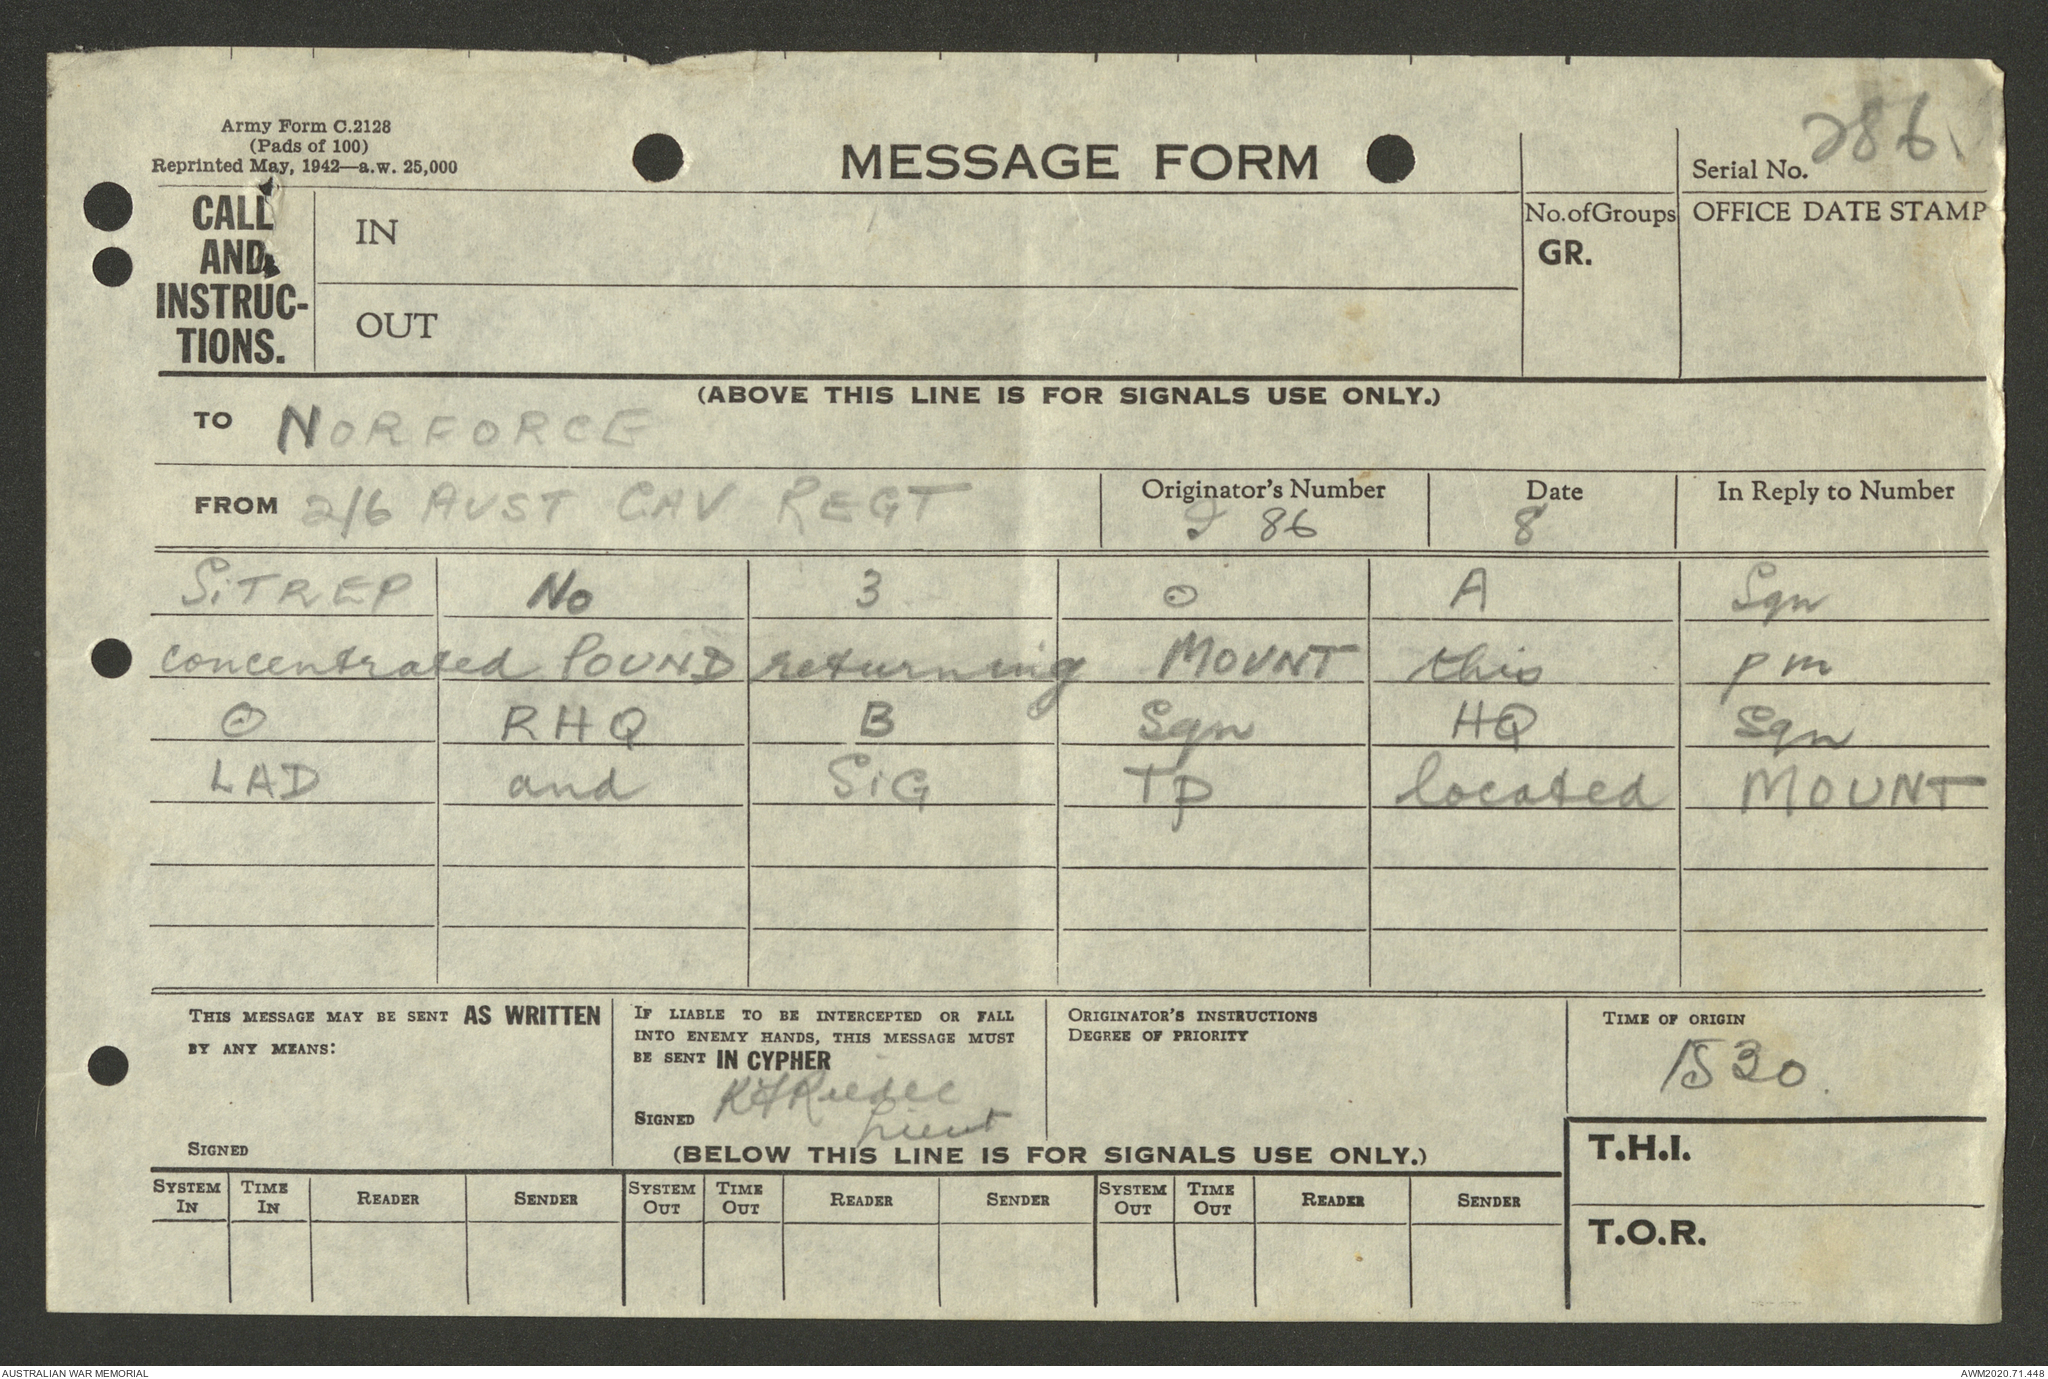 Army Form C.2128
(Pads of 100)
Reprinted May, 1942—a.w. 25,000
MESSAGE FORM
Serial No. 286
CALL AND INSTRUC-TIONS.
IN
OUT
No. of Groups
GR.
OFFICE DATE STAMP
(ABOVE THIS LINE IS FOR SIGNALS USE ONLY.)
TO NORFORCE
FROM 2/6 AUST CAV REGT
Originator's Number
86
Date
8
In Reply to Number
SiTREP No 3 ⊙ A Sqn
concentrated POUND returning MOUNT this pm
⊙ RHQ B Sqn HQ Sqn
LAD and SiG Tp located MOUNT
THIS MESSAGE MAY BE SENT AS WRITTEN
BY ANY MEANS:
SIGNED
IF LIABLE TO BE INTERCEPTED OR FALL
INTO ENEMY HANDS, THIS MESSAGE MUST
BE SENT IN CYPHER
SIGNED
Lieut
ORIGINATOR'S INSTRUCTIONS
DEGREE OF PRIORITY
TIME OF ORIGIN
1530
(BELOW THIS LINE IS FOR SIGNALS USE ONLY.)
T.H.I.
T.O.R.
SYSTEM IN TIME IN READER SENDER SYSTEM OUT TIME OUT READER SENDER SYSTEM OUT TIME OUT READER SENDER
AUSTRALIAN WAR MEMORIAL
AWM2020.71.448